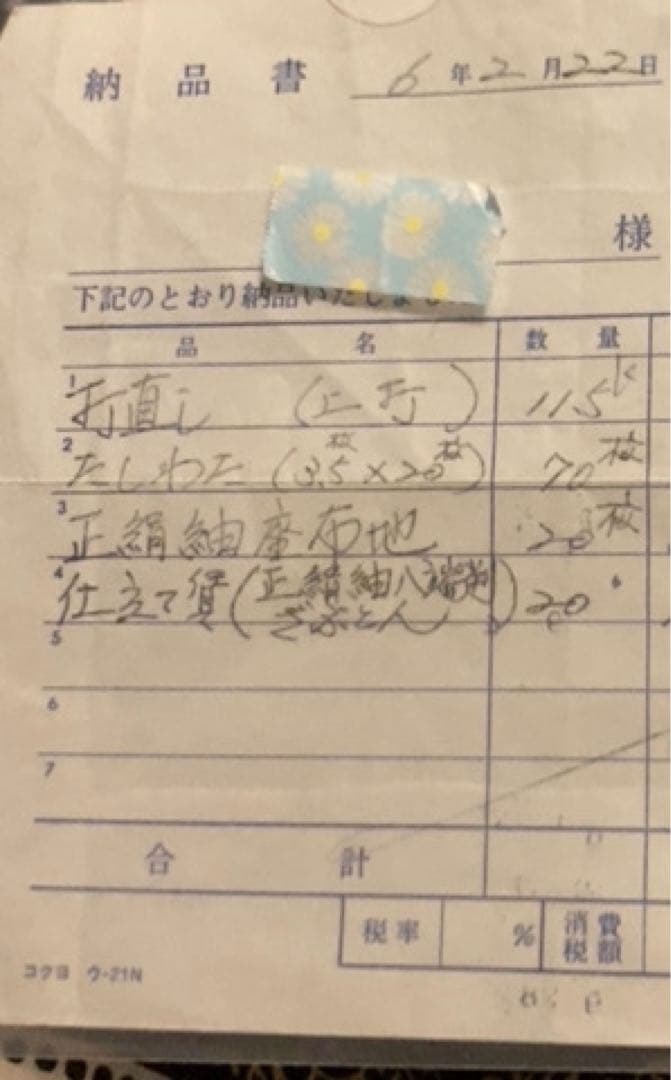 納品書 6年2月22日
様
下記のとおり納品いたしまし
品名 数量
1 打直し (上打) 115K
2 たしわた (3.5枚×20枚) 70枚
3 正絹紬座布地 20枚
4 仕立て賃 (正絹紬八端判 ざぶとん) 20
5
6
7
合計
税率 % 消費税額
コクヨ ウ-21N